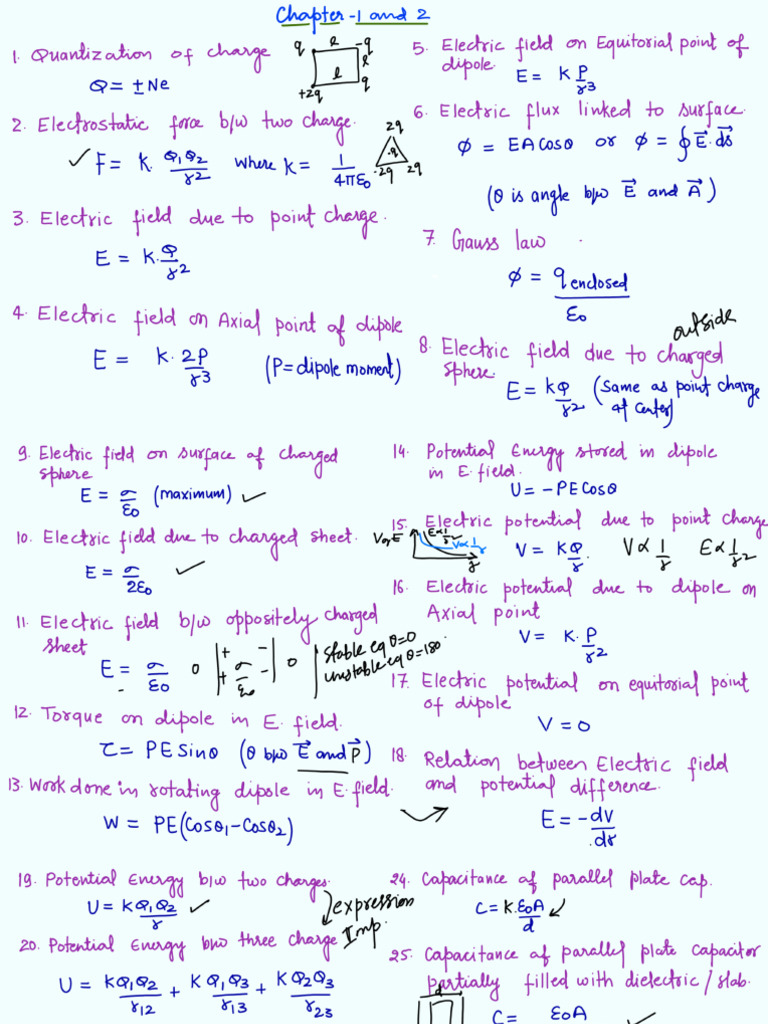 Chapter-1 and 2
1. Quantization of charge
Q = ± Ne
q l -q
l
l q
+2q
2. Electrostatic force b/w two charge.
✓ F = K. Q₁Q₂/r² where K = 1/4πε₀
2q
-q
-2q 2q
3. Electric field due to point charge.
E = K.Q/r²
4. Electric field on Axial point of dipole
E = K. 2P/r³ (P = dipole moment)
5. Electric field on Equitorial point of
dipole.
E = K P/r³
6. Electric flux linked to surface.
Φ = EA cosθ or Φ = ∮E⃗.ds⃗
(θ is angle b/w E⃗ and A⃗)
7. Gauss law.
Φ = q enclosed/ε₀
outside
8. Electric field due to charged
sphere.
E = KQ/r² (Same as point charge
at center)
9. Electric field on surface of charged
sphere
E = σ/ε₀ (maximum) ✓
10. Electric field due to charged sheet.
E = σ/2ε₀ ✓
11. Electric field b/w oppositely charged
sheet
E = σ/ε₀ 0 + - 0
+ σ/ε₀ -
stable eq θ=0
unstable eq θ=180
12. Torque on dipole in E. field.
τ = PE Sinθ (θ b/w E⃗ and P⃗)
13. Work done in rotating dipole in E. field.
W = PE(Cosθ₁-Cosθ₂)
14. Potential Energy stored in dipole
in E. field.
U = -PE Cosθ
15. Electric potential due to point charge
V or E E∝1/r² V∝1/r r
V = KQ/r. V∝1/r E∝1/r²
16. Electric potential due to dipole on
Axial point
V = K.P/r²
17. Electric potential on equitorial point
of dipole
V = 0
18. Relation between Electric field
and potential difference.
E = -dv/dr
19. Potential Energy b/w two charges.
U = KQ₁Q₂/r ✓
expression
Imp.
20. Potential Energy b/w three charge
U = KQ₁Q₂/r₁₂ + KQ₁Q₃/r₁₃ + KQ₂Q₃/r₂₃
24. Capacitance of parallel plate cap.
C = K.ε₀A/d ✓
25. Capacitance of parallel plate capacitor
partially filled with dielectric/slab.
d
C = ε₀A